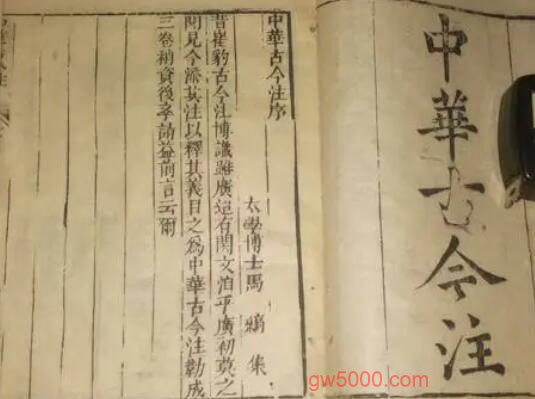 中華古今注
中華古今注序
太學博士馬縞集
昔崔豹古今注博識雖廣迨有闕文洎乎廣初莫之
聞見今添其注以釋其義目之爲中華古今注勒成
三卷稍資後學請益前言云爾
gw5000.com